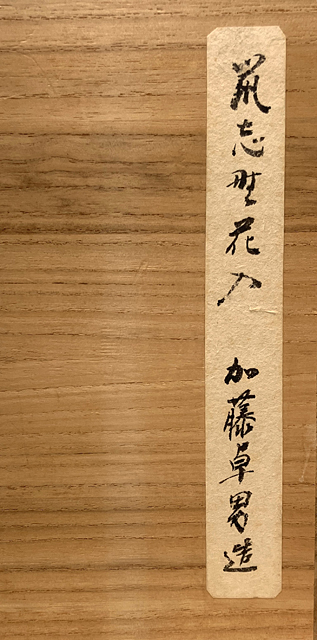 鼡志野花入 加藤卓男造